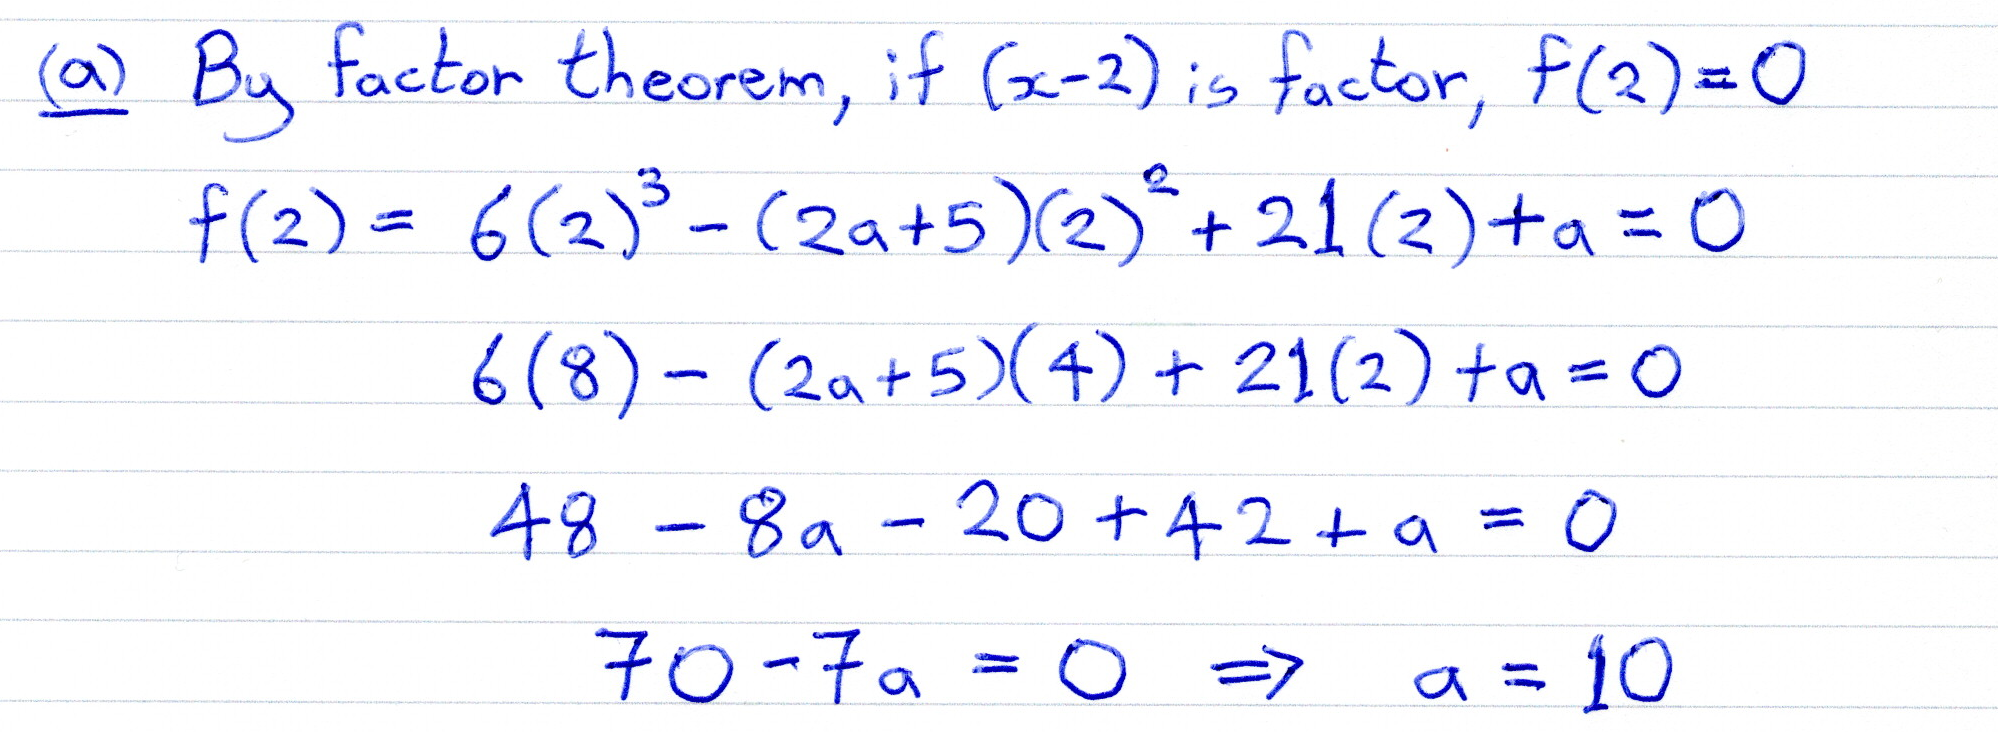 (a) By factor theorem, if (x-2) is factor, f(2)=0
f(2) = 6(2)³ - (2a+5)(2)² + 21(2) + a = 0
6(8) - (2a+5)(4) + 21(2) + a = 0
48 - 8a - 20 + 42 + a = 0
70 - 7a = 0 ⇒ a = 10